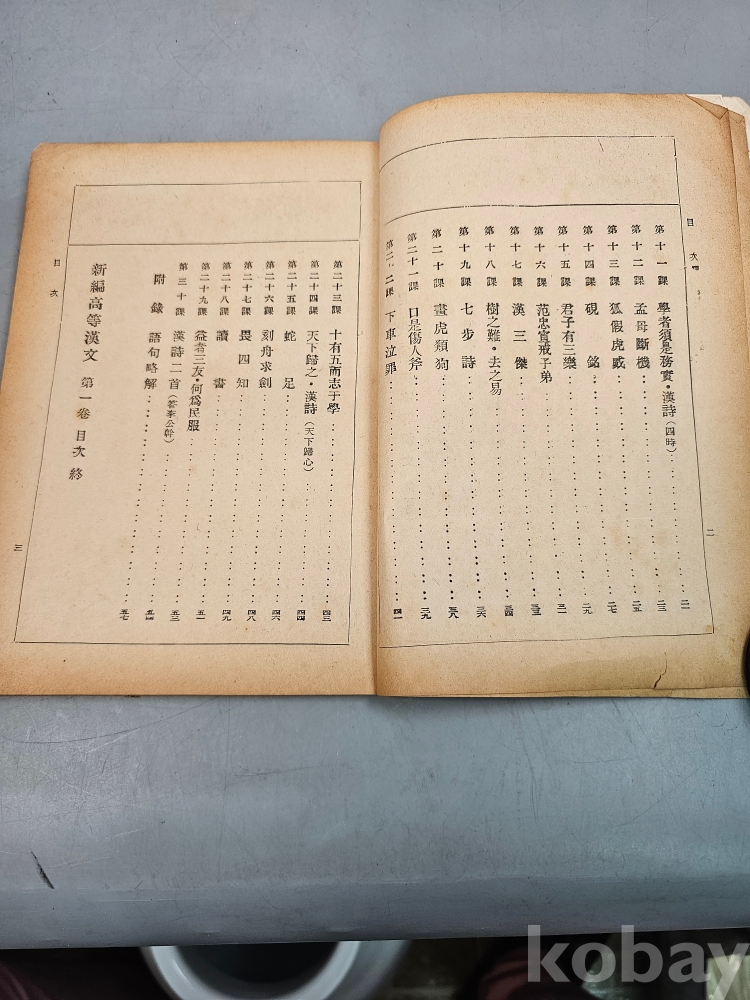 目次
二
第十一課 學者須是務實・漢詩(四時)……二一
第十二課 孟母斷機……二三
第十三課 狐假虎威……二五
第十四課 硯銘……二七
第十五課 君子有三樂……二九
第十六課 范忠宣戒子弟……三一
第十七課 漢三傑……三三
第十八課 樹之難・去之易……三四
第十九課 七步詩……三六
第二十課 畫虎類狗……三八
第二十一課 口是傷人斧……三九
第二十二課 下車泣罪……四一
第二十三課 十有五而志于學……四三
第二十四課 天下歸之・漢詩(天下歸心)……四四
第二十五課 蛇足……四六
第二十六課 刻舟求劍……四八
第二十七課 畏四知……四九
第二十八課 讀書……五一
第二十九課 益者三友・何爲民服……五三
第三十課 漢詩二首(答李公幹)……五四
附錄 語句略解……五七
新編高等漢文 第一卷 目次 終
目次
三
kobay